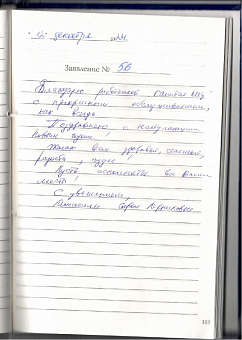 декабря
Заявление № 56
Благодарю работников
с прекрасным обслуживанием,
как всегда
Поздравляю с наступающим
Новым годом,
Желаю Вам здоровья, счастья,
радости,
Пусть исполнятся все Ваши
мечты,
С уважением,